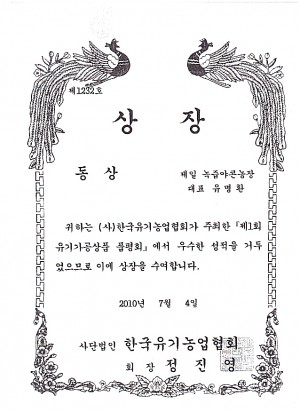 제1232호
상 장
동 상
제일 녹즙야콘농장
대표 유병환
귀하는 (사)한국유기농업협회가 주최한 『제1회
유기가공상품 품평회』에서 우수한 성적을 거두
었으므로 이에 상장을 수여합니다.
2010년 7월 4일
사단법인 한국유기농업협회
회 장 정 진 영